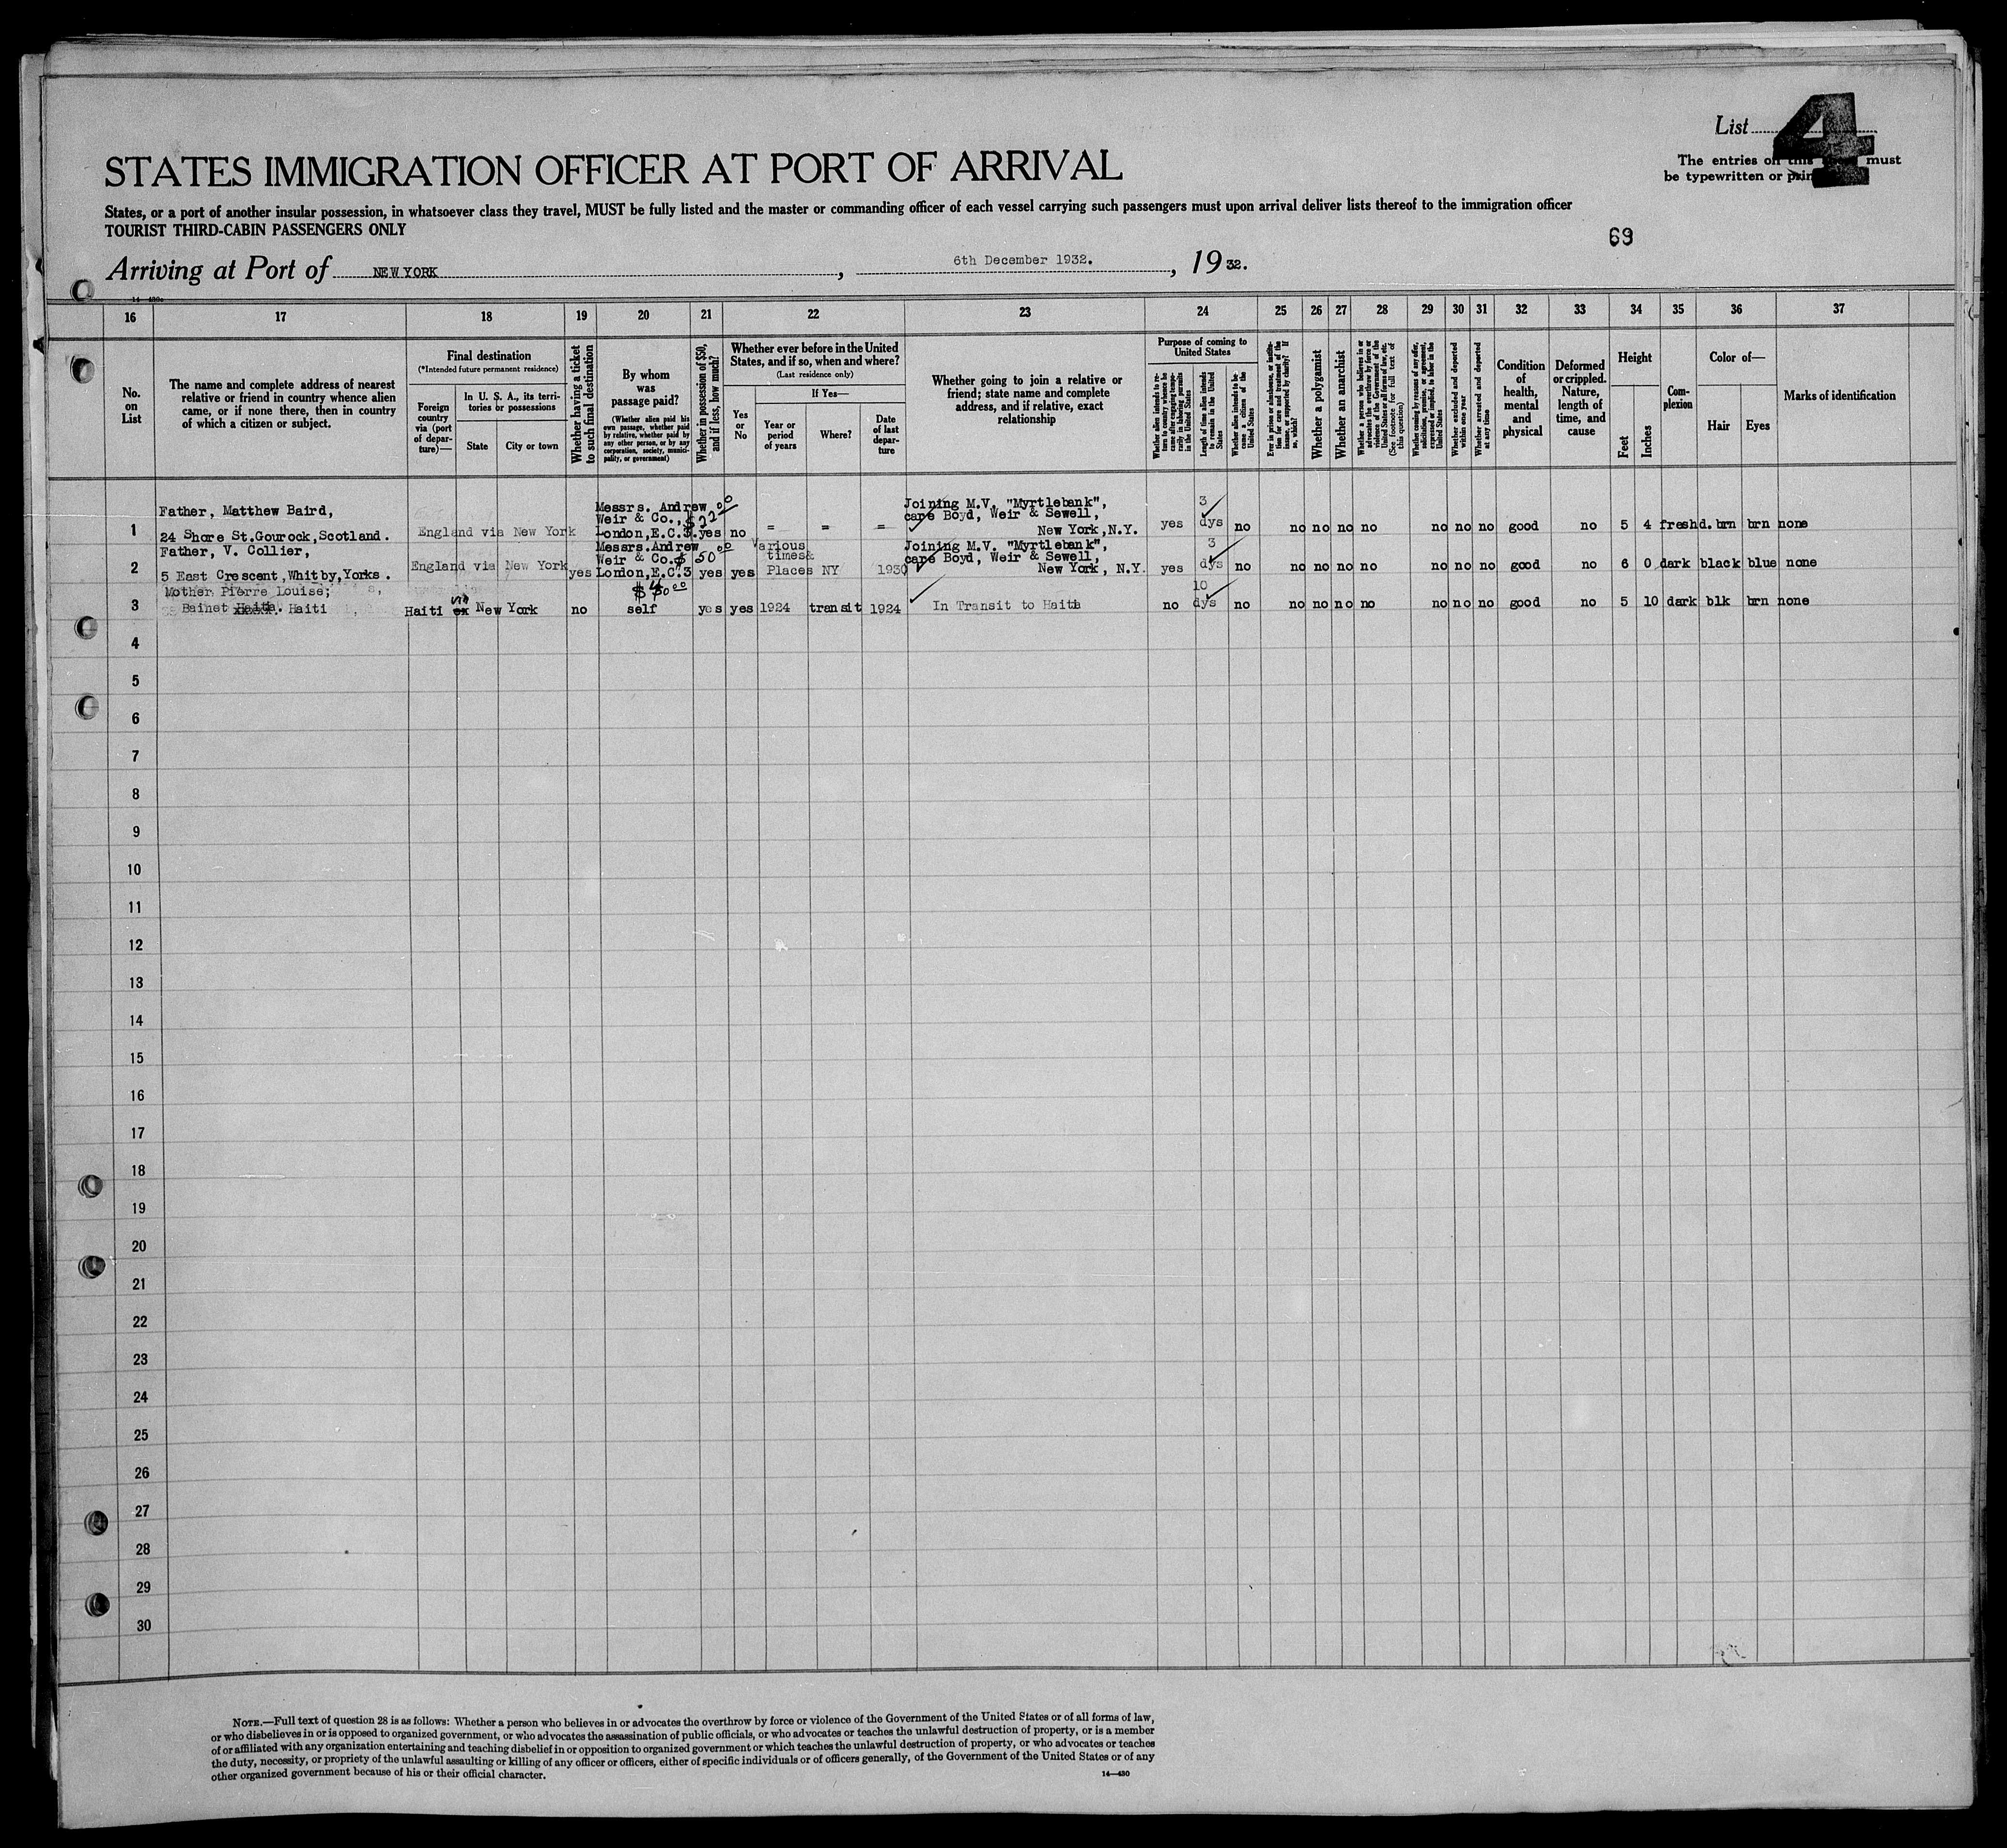 List 4
The entries on this must
be typewritten or prin
STATES IMMIGRATION OFFICER AT PORT OF ARRIVAL
States, or a port of another insular possession, in whatsoever class they travel, MUST be fully listed and the master or commanding officer of each vessel carrying such passengers must upon arrival deliver lists thereof to the immigration officer
TOURIST THIRD-CABIN PASSENGERS ONLY
69
Arriving at Port of NEW YORK, 6th December 1932., 1932.
16 17 18 19 20 21 22 23 24 25 26 27 28 29 30 31 32 33 34 35 36 37
No.
on
List
The name and complete address of nearest
relative or friend in country whence alien
came, or if none there, then in country
of which a citizen or subject.
Final destination
(*Intended future permanent residence)
Foreign
country
via (port
of depar-
ture)—
In U. S. A., its terri-
tories or possessions
State
City or town
Whether having a ticket
to such final destination
By whom
was
passage paid?
(Whether alien paid his
own passage, whether paid
by relative, whether paid by
any other person, or by any
corporation, society, munici-
pality, or government)
Whether in possession of $50,
and if less, how much?
Whether ever before in the United
States, and if so, when and where?
(Last residence only)
Yes
or
No
If Yes—
Year or
period
of years
Where?
Date
of last
depar-
ture
Whether going to join a relative or
friend; state name and complete
address, and if relative, exact
relationship
Purpose of coming to
United States
Whether alien intends to re-
turn to country whence he
came after engaging tempo-
rarily in laboring pursuits
in the United States
Length of time alien intends
to remain in the United
States
Whether alien intends to be-
come a citizen of the
United States
Ever in prison or almshouse, or institu-
tion for care and treatment of the
insane, or supported by charity? If
so, which?
Whether a polygamist
Whether an anarchist
Whether a person who believes in or
advocates the overthrow by force or
violence of the Government of the
United States or all forms of law, etc.
(See footnote for full text of
this question)
Whether coming by reason of any offer,
solicitation, promise, or agreement,
expressed or implied, to labor in the
United States
Whether excluded and deported
within one year
Whether arrested and deported
at any time
Condition
of
health,
mental
and
physical
Deformed
or crippled.
Nature,
length of
time, and
cause
Height
Feet
Inches
Com-
plexion
Color of—
Hair
Eyes
Marks of identification
Father, Matthew Baird,
24 Shore St.Gourock,Scotland.
1 England via New York
Messrs. Andrew
Weir & Co.,
London,E.C.3.
$22.00
yes no = = =
Joining M.V. "Myrtlebank",
care Boyd, Weir & Sewell,
New York,N.Y.
yes 3 dys no no no no no no no no good no 5 4 fresh d. brn brn none
Father, V. Collier,
5 East Crescent,Whitby,Yorks.
2 England via New York yes
Messrs.Andrew
Weir & Co.
London,E.C.3
$50.00
yes yes Various
times&
Places NY 1930
Joining M.V. "Myrtlebank",
care Boyd, Weir & Sewell,
New York, N.Y.
yes 3 dys no no no no no no no no good no 6 0 dark black blue none
Mother Pierre Louise;
Bainet Haiti
3 Haiti via New York no self yes yes 1924 transit 1924
In Transit to Haiti
no 10 dys no no no no no no no no good no 5 10 dark blk brn none
4
5
6
7
8
9
10
11
12
13
14
15
16
17
18
19
20
21
22
23
24
25
26
27
28
29
30
NOTE.—Full text of question 28 is as follows: Whether a person who believes in or advocates the overthrow by force or violence of the Government of the United States or of all forms of law,
or who disbelieves in or is opposed to organized government, or who advocates the assassination of public officials, or who advocates or teaches the unlawful destruction of property, or is a member
of or affiliated with any organization entertaining and teaching disbelief in or opposition to organized government or which teaches the unlawful destruction of property, or who advocates or teaches
the duty, necessity, or propriety of the unlawful assaulting or killing of any officer or officers, either of specific individuals or of officers generally, of the Government of the United States or of any
other organized government because of his or their official character.
14—430